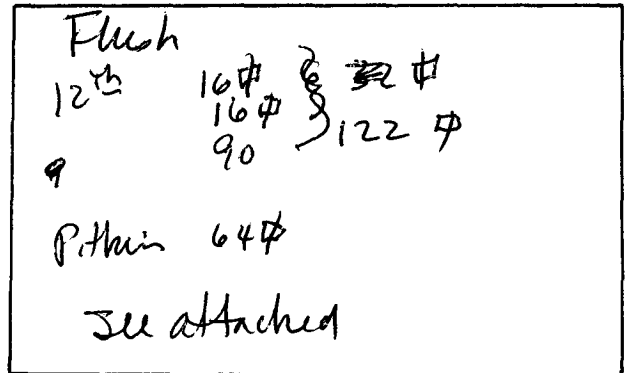 Flush
12th 16⌗ } ⌗
16⌗
90 } 122 ⌗
Pitkin 64⌗
see attached